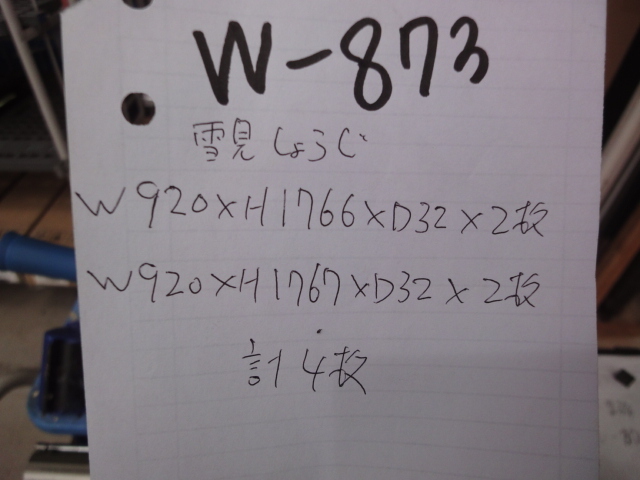 W-873
雪見しょうじ
W920×H1766×D32×2枚
W920×H1767×D32×2枚
計4枚